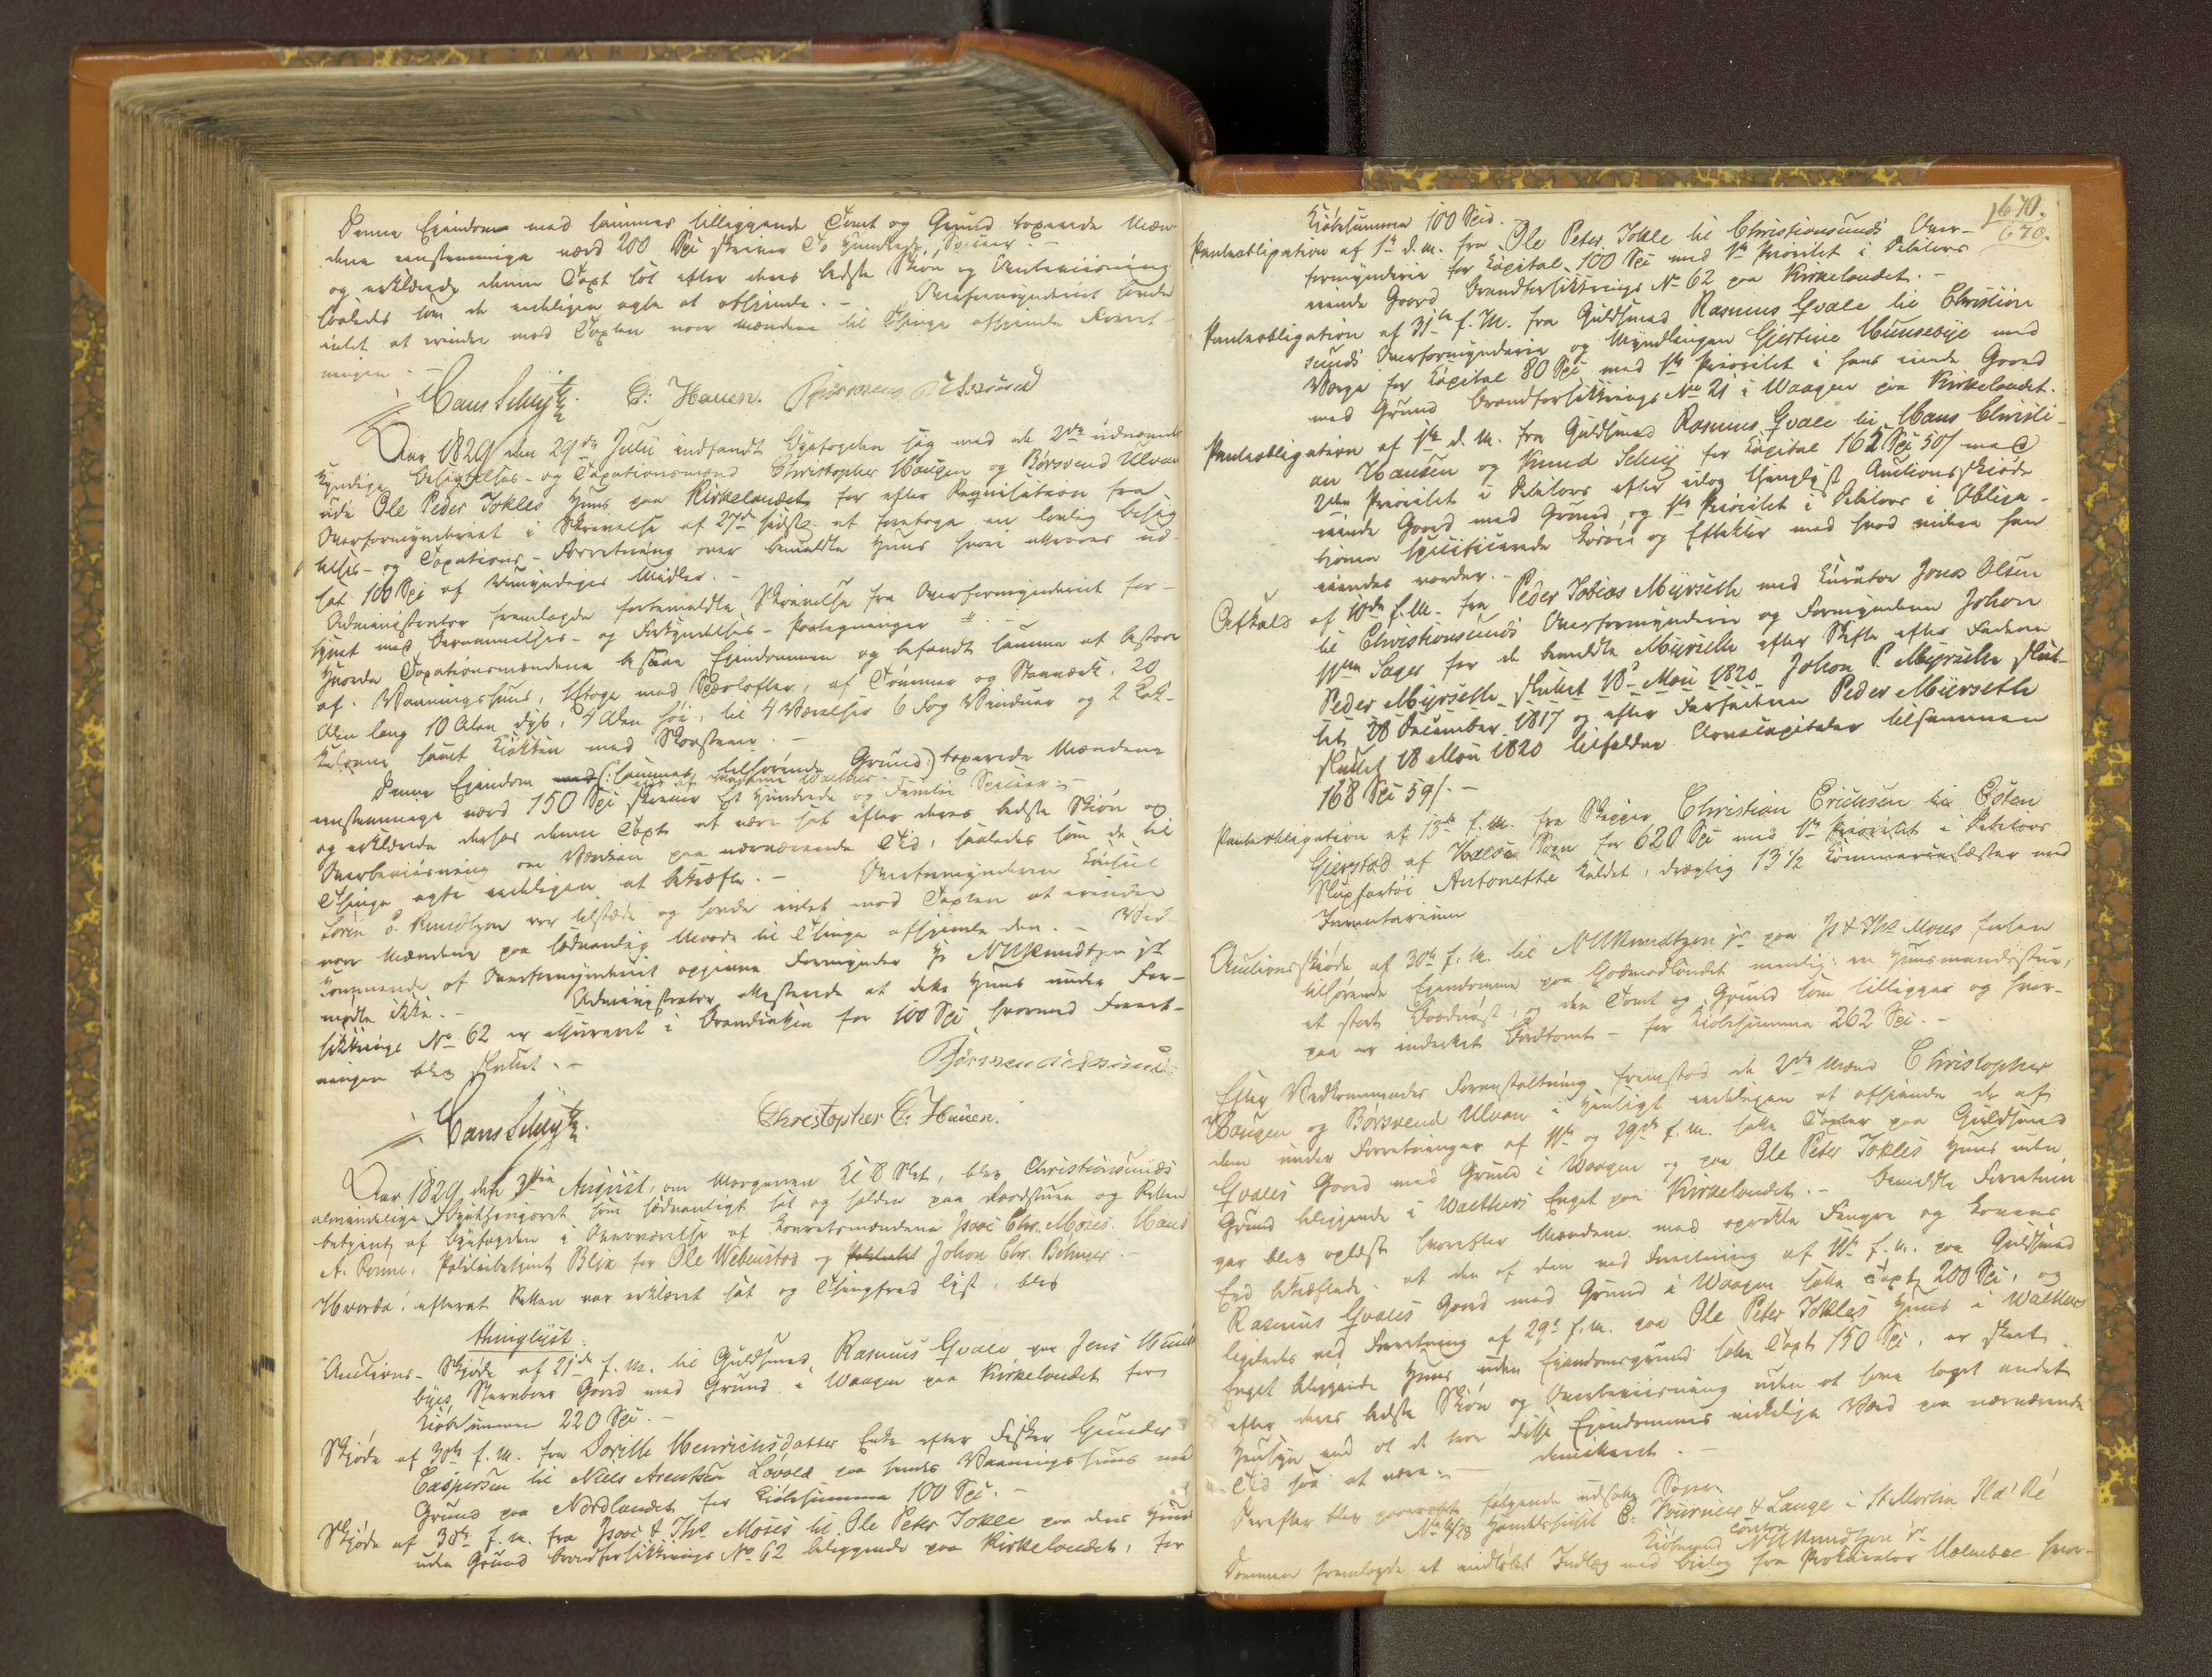 Denne Eiendom med sammes tilliggende Tomt og Grund taxerede Mæn-
dene eenstemmige værd 200 Spe skriver To Hundrede Specier. -
og erklærede denne Taxt sat efter deres bedste Skjøn og Overbeviisning
saaledes som de eedeligen agte at afhjemle. - Overformynderiet havde
intet at erindre mod Taxten naar Mændene til Thinge afhjemle Forret-
ningen. -
Hans Schytz. C: Hauen.
Aar 1829 den 29de Julii indfandt Byefogden sig med de 2de udnævnte
kyndige Besigtelses- og Taxationsmænd Christopher Haugen og Børsvend Ulvun
udi Ole Peder Jokles Huus paa Kirkelandet for efter Requisition fra
Overformynderiet i Skrivelse af 27de sidstl. at foretage en lovlig Besig-
telses- og Taxations-Forretning over bemeldte Huus hvori attraaes ud-
sat 100 Spe af Umyndiges Midler. -
Administrator fremlagde forbemeldte Skrivelse fra Overformynderiet for-
synet med Berammelses- og Forkyndelses-Paategninger
Hvorda Taxationsmændene besaae Eiendommen og befandt samme at bestaae
af Vaaningshuus, 1 Etage med Qværlofter, af Tømmer og Stavværk, 20
Alen lang 10 Alen dyb, 4 Alen høi, til 4 Værelser 6 Fag Vinduer og 2 Kak-
kelovne samt Kiøkken med Skorsteen. -
Denne Eiendom (: sammes tilhørende Grund:) taxerede Mændene
eenstemmige værd 150 Spe skriver Et Hundrede og Femti Specier. -
og erklærede derhos denne Taxt at være sat efter deres bedste Skjøn og
Overbeviisning om Værdien paa nærværende Tid, saaledes som de til
Thinge agte eedeligen at bekræfte. - Overformynderen Consul
Søren P. Knudtzon var tilstæde og havde intet mod Taxten at erindre
naar Mændene paa sædvanlig Maade til Thinge afhjemle den. - Ved-
kommende af Overformynderiet opgivne Formynder Hr N H Knudtzon jr
mødte ikke. - Administrator attesterede at dette Huus under For-
sikrings No 62 er assureret i Brandcassen for 100 Spe hvormed Forret-
ningen blev sluttet. -
Hans Schytz. Christopher C: Hauen.
Aar 1829 den 3die August, om Morgenen Kl 8 Slet, blev Christiansunds
almindelige Byethingsret som sædvanligt sat og holden paa Raadstuen og Retten
betjent af Byefogden i Overværelse af Laurettsmændene Isaac Chr. Moses. Hans
A. Romue. Politiebetjent Blix for Ole Webenstad og Johan Chr. Bohmer. -
Hvorda, efterat Retten var erklæret sat og Thingfred lyst, blev
thinglyst:
Auctions-Skjøde af 21de f. M. til Guldsmed Rasmus Qvale paa Jens Munse-
byes Sterboes Gaard med Grund i Waagen paa Kirkelandet for
Kiøbesummen 220 Spe. -
Skjøde af 30te f. M. fra Dorithe Henrichsdatter Enke efter Fisker Gunder
Caspersen til Niels Arentsen Løvold paa hendes Vaaningshuus med
Grund paa Nordlandet for Kiøbesummen 100 Spe. -
Skjøde af 30te f. M. fra Isaac & Ths Moses til Ole Peter Jokle paa deres Huus
uden Grund Brandforsikkrings No 62 beliggende paa Kirkelandet, for
670.
670.
Kiøbesummen 100 Spd.
Panteobligation af 1te d. M. fra Ole Peter Jokle til Christiansunds Over-
formynderie for Kapital 100 Spe med 1te Prioritet i Debitors
eiende Gaard Brandforsikkrings No 62 paa Kirkelandet. -
Panteobligation af 31te f. M. fra Guldsmed Rasmus Qvale til Christian-
sunds Overformynderie og Myndlingen Gjertine Munsebye med
Værge for Kapital 80 Spe med 1te Prioritet i hans eiende Gaard
med Grund Brandforsikkrings No 21 i Waagen paa Kirkelandet.
Panteobligation af 1te d. M. fra Guldsmed Rasmus Qvale til Hans Christi-
an Hansen og Knud Schuy for Kapital 162 Spe 50/ med
2den Prioritet i Debitors efter idag thinglyst Auctionsskjøde
eiende Gaard med Grund og 1te Prioritet i Debitors i Obliga-
tionen specificerede Løsøre og Effekter med hvad videre han
eiendes vorder. -
Afkald af 10de f. M. fra Peder Tobias Myrseth med Curator Jonas Olsen
til Christiansunds Overformynderie og Formynderen Johan
Wm Sager for de bemeldte Myrseth efter Skifte efter Faderen
Peder Myrseth sluttet 18de Mai 1820 Johan P. Myrseth slut-
tet 28 December 1817 og efter Farfaderen Peder Myrseth
sluttet 18 Mai 1820 tilfaldne Arvecapitaler tilsammen
168 Spe 59/. -
Panteobligation af 13de f. M. fra Skipper Christian Erichsen til Østen
Gjerstad af Halsøe Sogn for 620 Spe med 1te Prioritet i Debitors
Slupfartøi Antonette kaldet, drægtig 13 1/2 Commercelæster med
Inventarium
Auctionsskjøde af 30te f. M. til N H Knudtzon jr paa Js & Ths Moses forhen
tilhørende Eiendomme paa Godmedlandet nemlig: en Huusmandsstue,
et stort Baadnøst, og den Tomt og Grund som tilligger og hvor-
paa er indrettet Bordtomt - for Kiøbesumma 262 Spe. -
Efter Vedkommendes Foranstaltning fremstod de 2de Mænd Christopher
Haugen og Børsvend Ulvun i Henligt eedeligen at afhjemle de af
dem under Forretninger af 11te og 29de f. M. satte Taxter paa Guldsmed
Qvales Gaard med Grund i Waagen og paa Ole Peter Jokles Huus uden
Grund beliggende i Walthers Enget paa Kirkelandet. - Bemeldte Forretnin-
ger blev oplæst hvorefter Mændene med oprakte Fingre og Lovens
Eed bekræftede, at den af dem ved Forretning af 11te f. M. paa Guldsmed
Rasmus Qvales Gaard med Grund i Waagen satte Taxt 200 Spe, og
ligeledes ved Forretning af 29de f. M. paa Ole Peter Jokles Huus i Walthers
Enget beliggende Huus uden Eiendomsgrund satte Taxt 150 Spe, er skeet
efter deres bedste Skjøn og Overbeviisning uden at have taget andet
Hensyn end at de troe disse Eiendommes virkelige Værd paa nærværende
Tid saa at være. - demitteret. -
Derefter blev paaraabt følgende udsatte Sager.
No 6/28 Handelshuset C. Fournier & Lange i St Martin Ile de Ré
contra
Kiøbmand N H Knudtzon jr
Dommeren fremlagde et indløbet Indlæg med Bielag fra Prokurator Malmbec hvor-